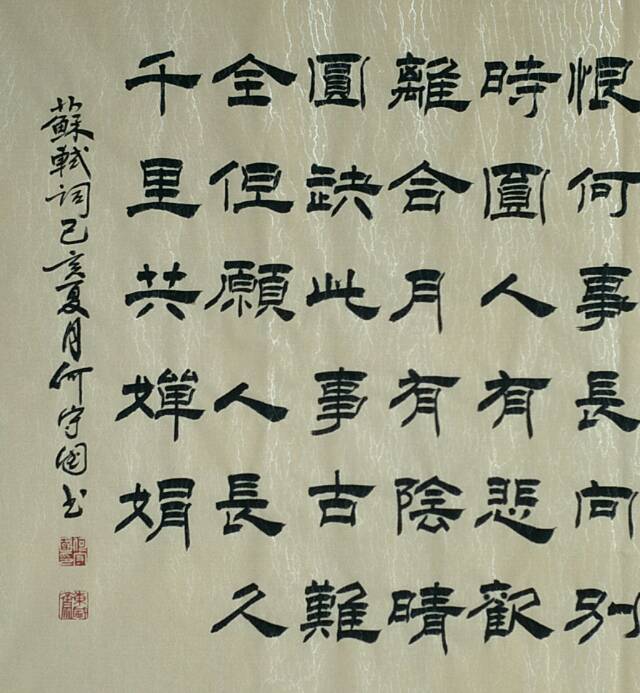 恨何事長向别
時圓人有悲歡
離合月有陰晴
圓缺此事古難
全但願人長久
千里共嬋娟
蘇軾词己亥夏月何守国书